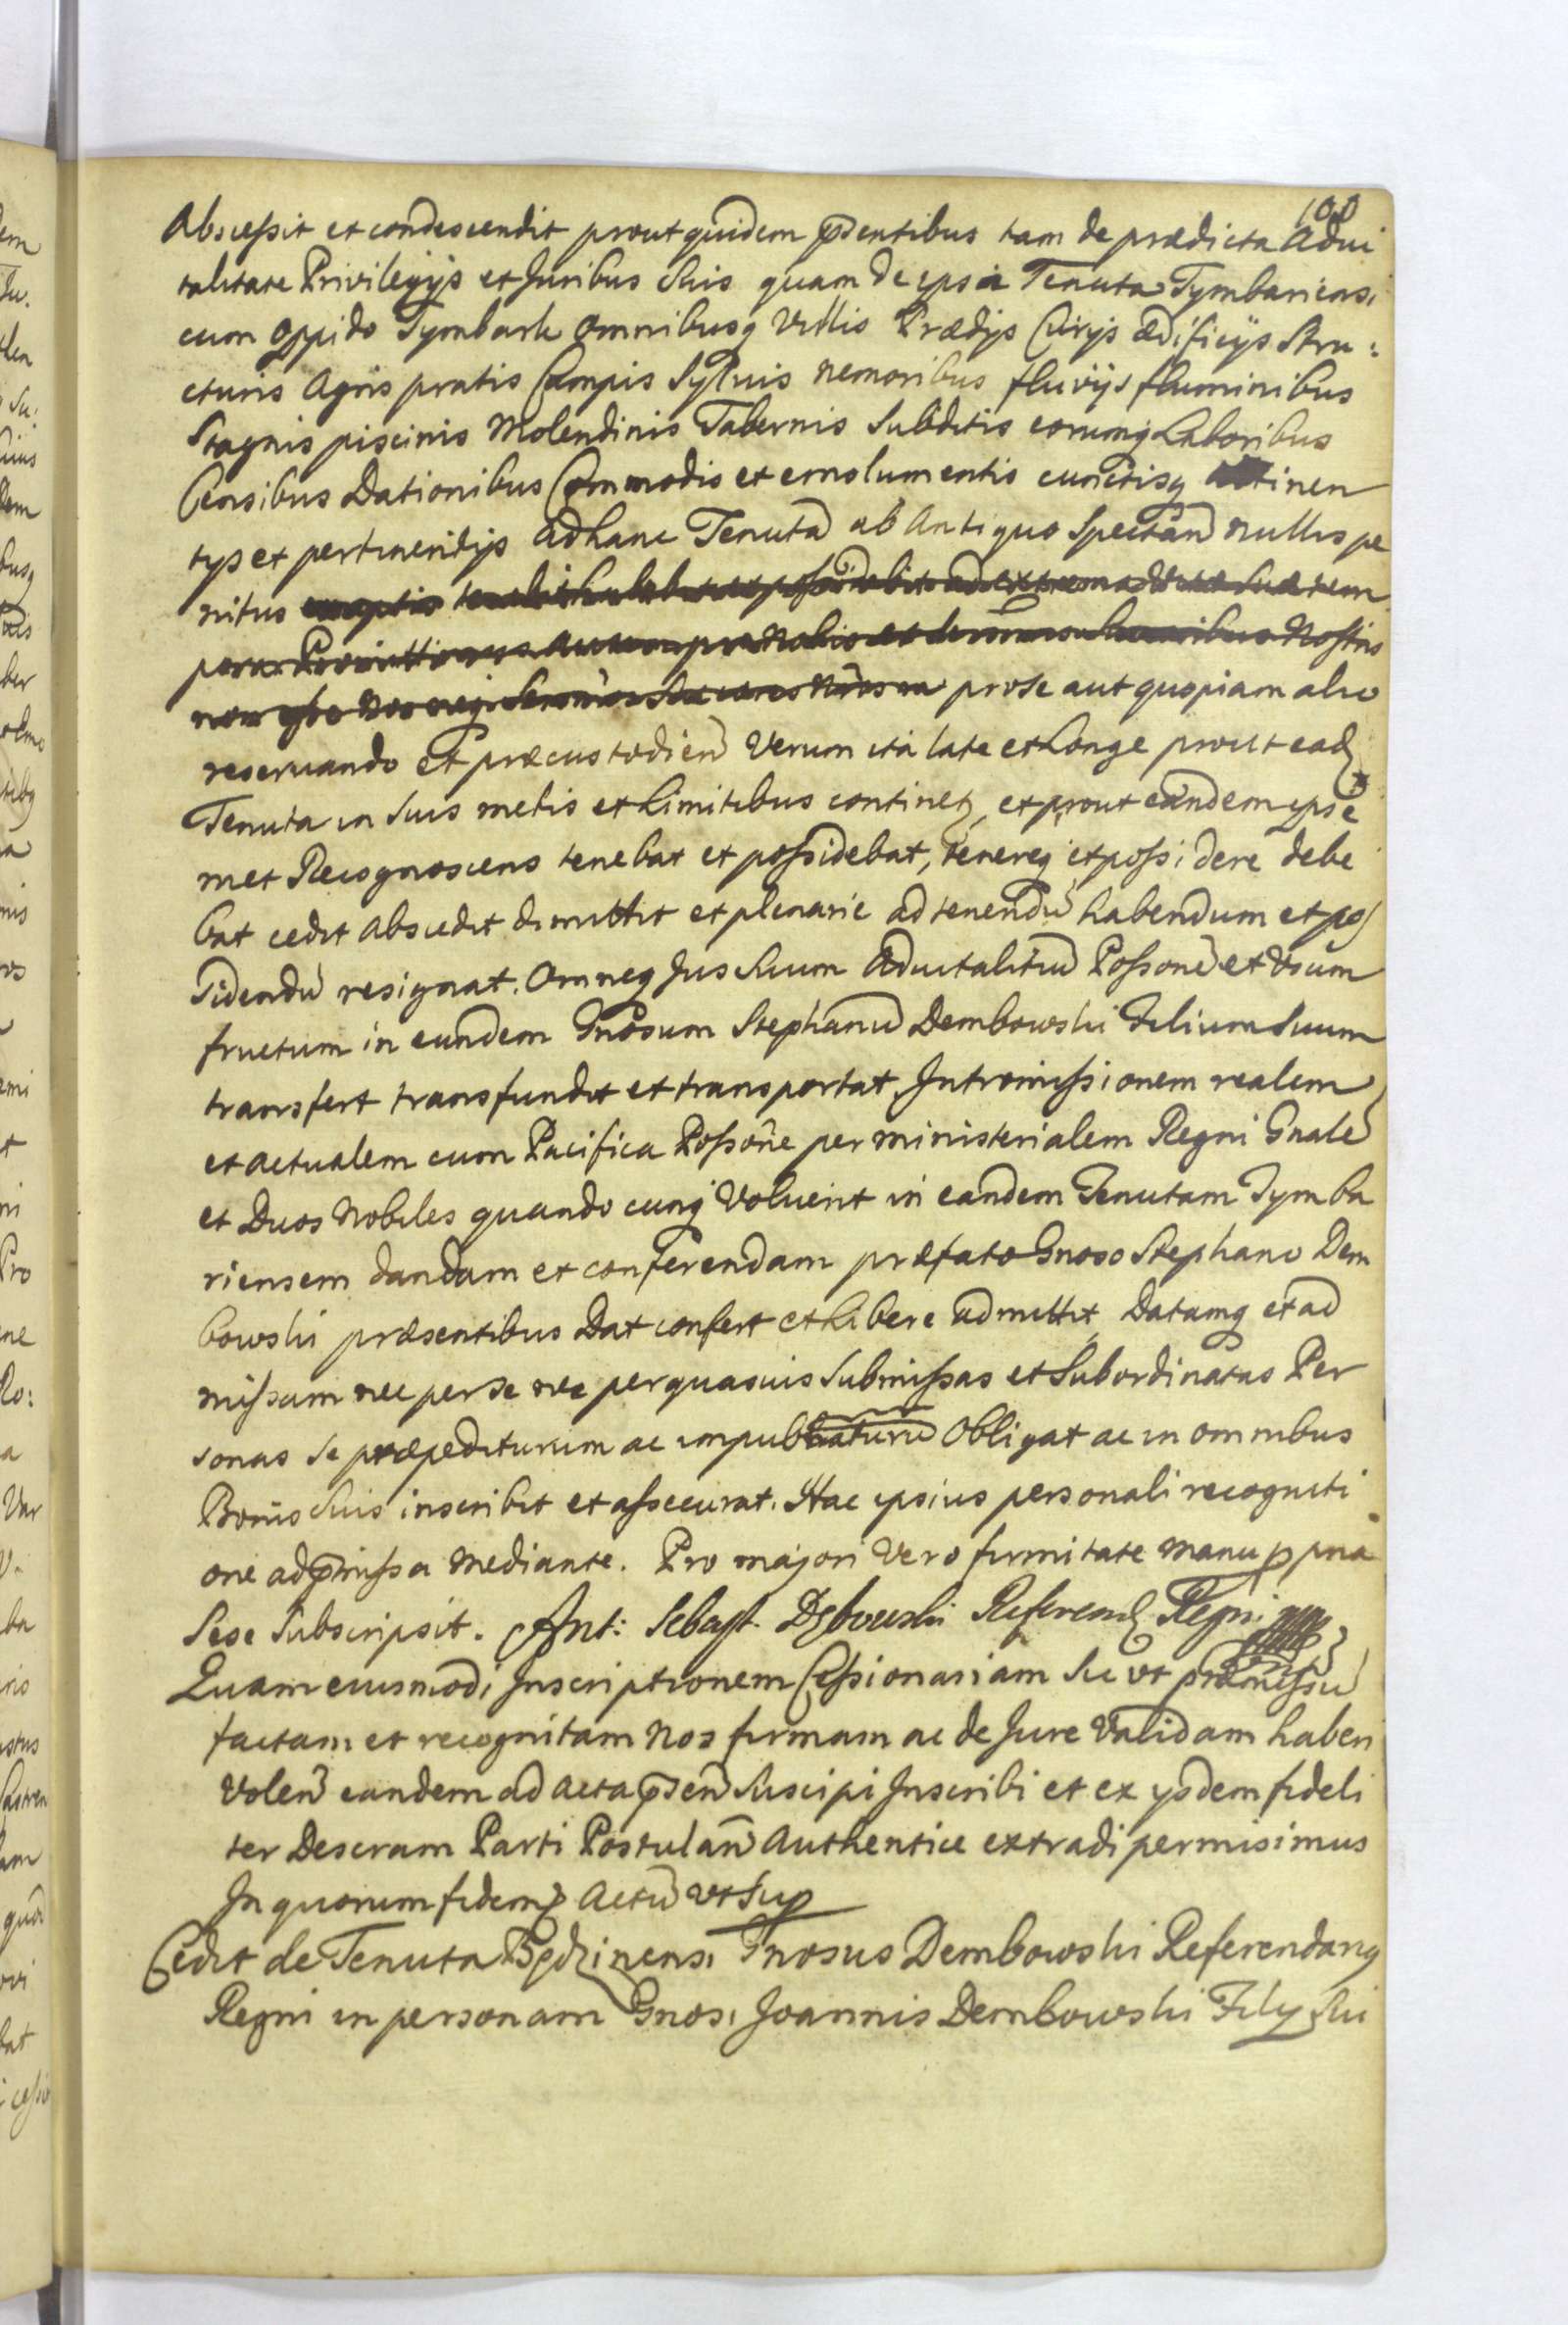 100
Abscessit et condescendit prout quidem pñtibus tam de prædicta Advi
talitate Privilegijs et Juribus Suis quam de ipsa Tenuta Tymbariensi
cum oppido Tymbark omnibusq Villis Prædijs Curijs ædificijs Stru:
cturis Agris pratis Campis Sylvis nemoribus fluvijs fluminibus
Stagnis piscinis Molendinis Tabernis Subditis eorumq Laboribus
Censibus Dationibus Commodis et emolumentis cunctisq attinen
tijs et pertinentijs ad hanc Tenutã ab Antiquo Spectañ nullis pe
nitus exceptis
Nostris
pro se aut quopiam alio
reservando et præcustodieñ Verum ita late et Longe prout ead
Tenuta in suis metis et Limitibus continet, et prout eandem ipse
met Recognoscens tenebat et possidebat, tenereq et possidere debe
bat cedit abscedit dimittit et plenarie ad tenendũ habendum et pos
sidendũ resignat. Omneq Jus Suum Advitalitiũ Possonẽ et Usum
fructum in eundem Gnosum Stephanũ Dembowski Filium Suum
transfert transfundit et transportat, Intromissionem realem
et actualem cum Pacifica Possoñe per ministerialem Regni Gnalẽ
et Duos Nobiles quandocunq Voluerit in eandem Tenutam Tymba
riensem dandam et conferendam præfato Gnoso Stephano Dem
bowski præsentibus Dat confert et Libere admittit, Datamq et ad
missam nec per se nec per quasuis Submissas et Subordinatas Per
sonas se præpediturum ac impubnaturũ Obligat ac in omnibus
Bonis Suis inscribit et assecurat. Hac ipsius personali recogniti
one ad p̃missa mediante. Pro majori Vero firmitate manu ppria
Sese Subscripsit. Ant: Sebast. Dębowski Referend Regni
Quam eiusmodi Inscriptionem Cessionariam Sic ut præmissũ
factam et recognitam Nos firmam ac de Jure Validam haberi
Voleñ eandem ad acta p̃señ Suscipi Inscribi et ex ijsdem fideli
ter Descram Parti Postulañ Authentice extradi permisimus
In quorum fidem Actũ ut Sup
Cedit de Tenuta Będzinensi Gnosus Dembowski Referendarig
Regni in personam Gnosi Joannis Dembowski Filij Sui